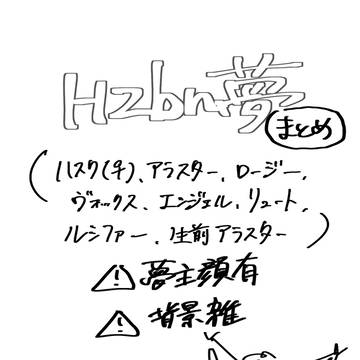 Hzbn夢
まとめ
(ハスク(手)、アラスター、ロージー、
ヴォックス、エンジェル、リュート、
ルシファー、生前アラスター)
⚠夢主顔有
⚠背景雑